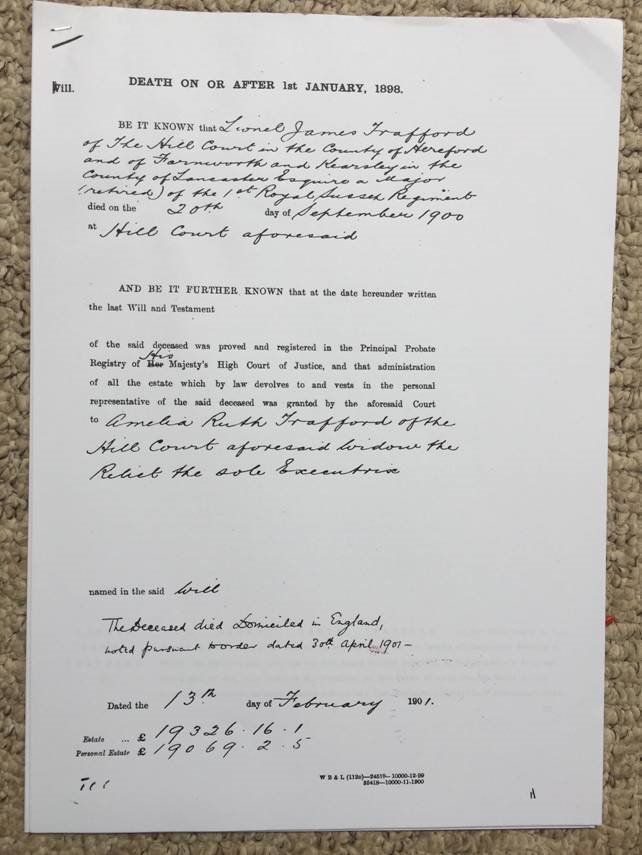 Will.
DEATH ON OR AFTER 1st JANUARY, 1898.
BE IT KNOWN that Lionel James Trafford
of The Hill Court in the County of Hereford
and of Farnworth and Kearsley in the
County of Lancaster Esquire a Major
(retired) of the 1st Royal Sussex Regiment
died on the 20th day of September 1900
at Hill Court aforesaid
AND BE IT FURTHER KNOWN that at the date hereunder written
the last Will and Testament
of the said deceased was proved and registered in the Principal Probate
His
Registry of Her Majesty's High Court of Justice, and that administration
of all the estate which by law devolves to and vests in the personal
representative of the said deceased was granted by the aforesaid Court
to Amelia Ruth Trafford of the
Hill Court aforesaid Widow the
Relict the sole Executrix
named in the said Will
The Deceased died Domiciled in England,
noted pursuant to order dated 30th April 1901 -
Dated the 13th day of February 1901.
Estate ... £ 19326.16.1
Personal Estate £ 19069.2.5
W B & L (112s)—24519—10000-12-99
35418—10000-11-1900